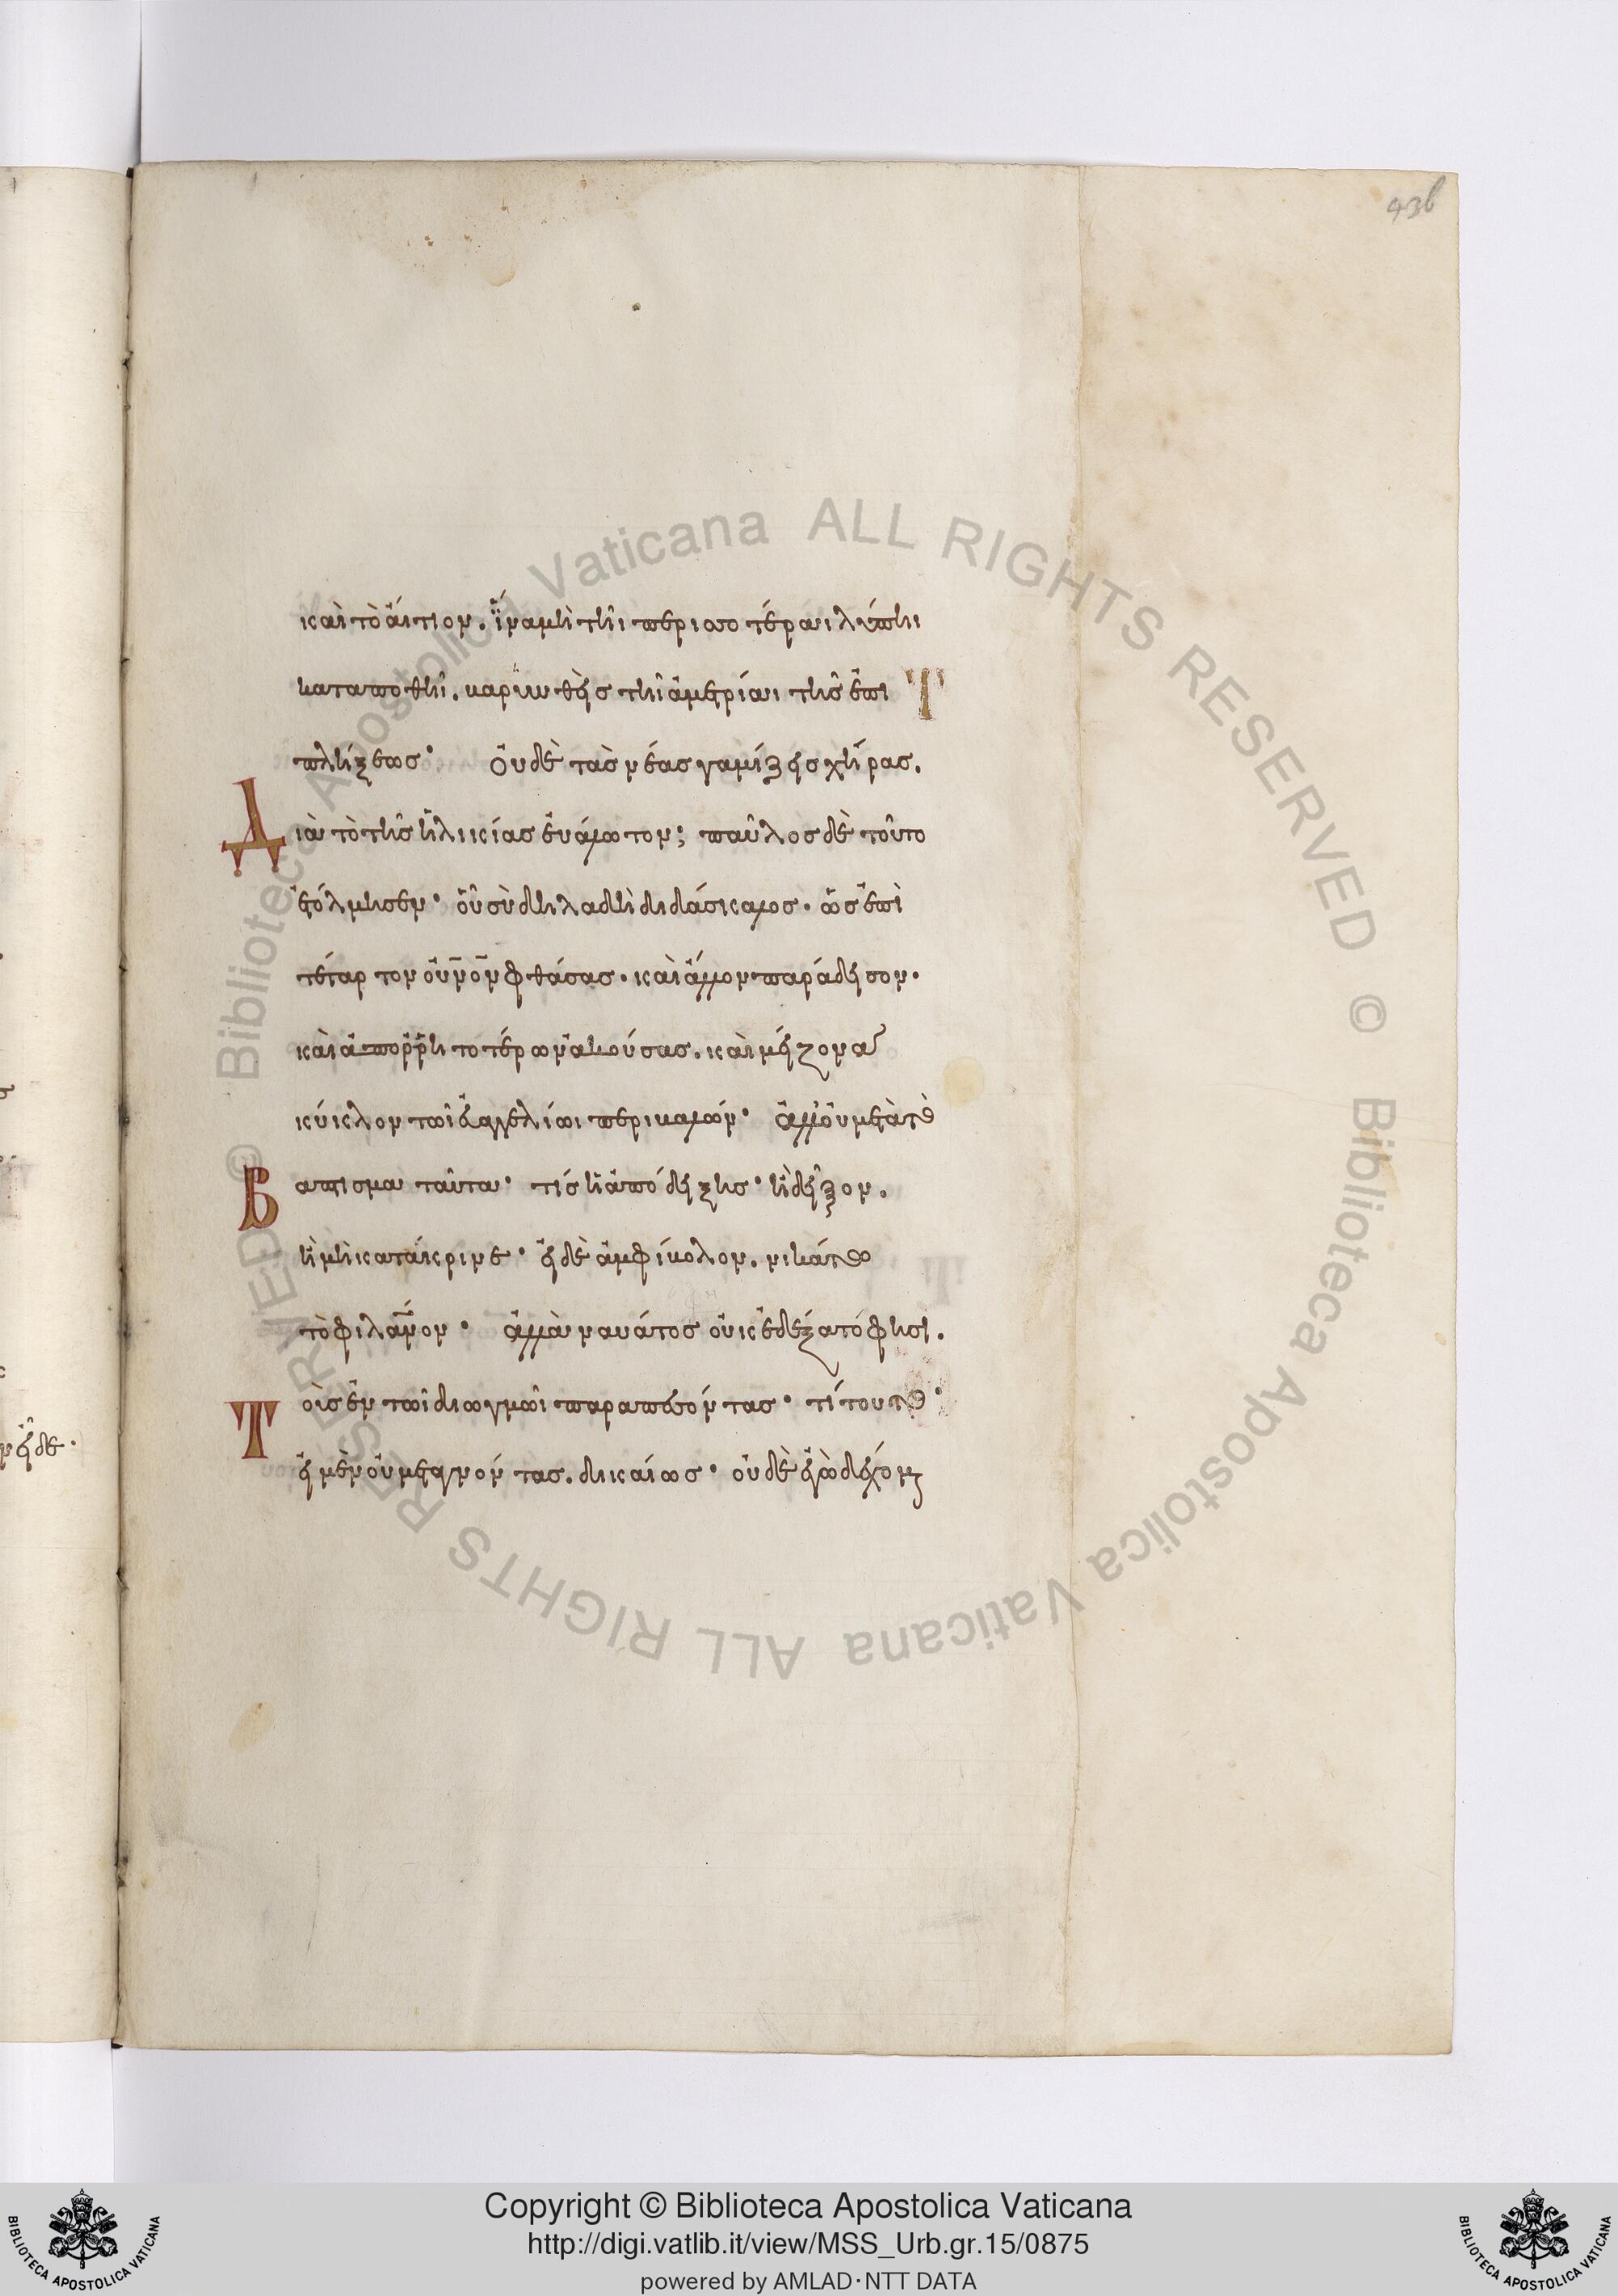 43b
καὶ τὸ αἴτιον. ἵνα μὴ τῆι περισσοτέραι λύπηι
καταποθῆι. βαρηνθεὶς τῆι ἀμετρίαι τῆς ἐπι
πλήξεως· οὐδὲ τὰς νέας γαμίζεις χήρας.
Διὰ τὸ τῆς ἡλικίας εὐάλωτον; παῦλος δὲ τοῦτο
ἐτόλμησεν· οὗ σὺ δηλαδὴ διδάσκαλος. ὡς ἐπὶ
τέταρτον οὐνὸν φθάσας. καὶ ἄλλον παράδεισον.
καὶ ἀπορρητοτέρων ἀκούσας. καὶ μείζονα
κύκλον τῶι εὐαγγελίωι περιλαβών· ἀλλ' οὐ μετὰ τὸ
Βάπτισμα ταῦτα· τίς ἡ ἀπόδειξις· ἢ δεῖξον.
ἢ μὴ κατάκρινε· εἰ δὲ ἀμφίβολον. νικάτω
τὸ φιλάνον· ἀλλὰ ναυάτος οὐκ ἐδέξατό φησι.
Τοὺς ἐν τῶι διωγμῶι παραπεσόντας· τί τοῦτο·
εἰ μὲν οὐ μεταγνόντας. δικαίως· οὐδὲ ἐγὼ δέχομαι
ν εἰ δὲ·
Copyright © Biblioteca Apostolica Vaticana
http://digi.vatlib.it/view/MSS_Urb.gr.15/0875
powered by AMLAD·NTT DATA
BIBLIOTECA APOSTOLICA VATICANA
BIBLIOTECA APOSTOLICA VATICANA
© Biblioteca Apostolica Vaticana ALL RIGHTS RESERVED
© Biblioteca Apostolica Vaticana ALL RIGHTS RESERVED